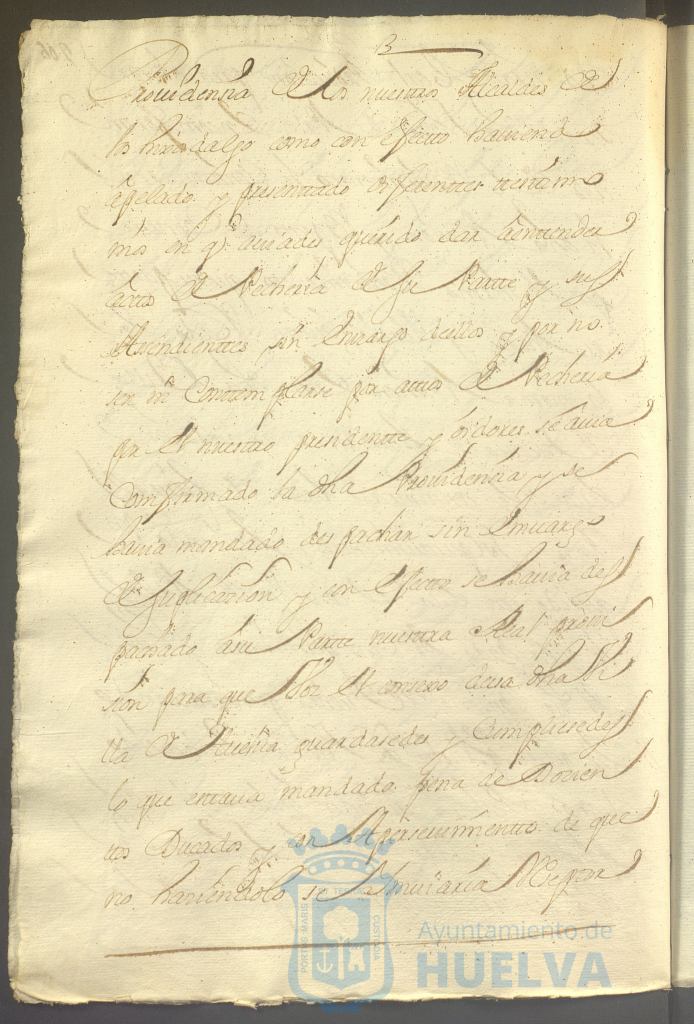 Providensia de los nuestros Alcaldes de
los hixosdalgo como con efecto haviend
apelado y presentado diferentes testimo
nios en q.e aviades querido dar a entender
actos de Pecheria de su Parte y sus
Asendientes sin Embargo de ellos y por no
ser ni Contemplarse por actos de Pecheria
por el nuestro presidente y oidores se avia
Comfirmado la dha Providensia y se
havia mandado despachar sin Embargo
de suplicasion y con efecto se havia des
pachado a su Parte nuestra Real provi
sion para que Vos el consexo de esa dha Vi
lla de Huelva guardasedes y Cumpliesedes
lo que en ella mandado pena de Dozien
tos Ducados y con Apersevimiento de que
no haziendolo se Embiaria
Ayuntamiento de
HUELVA
PORTUS MARIS
ET TERRAE
CUSTODIA